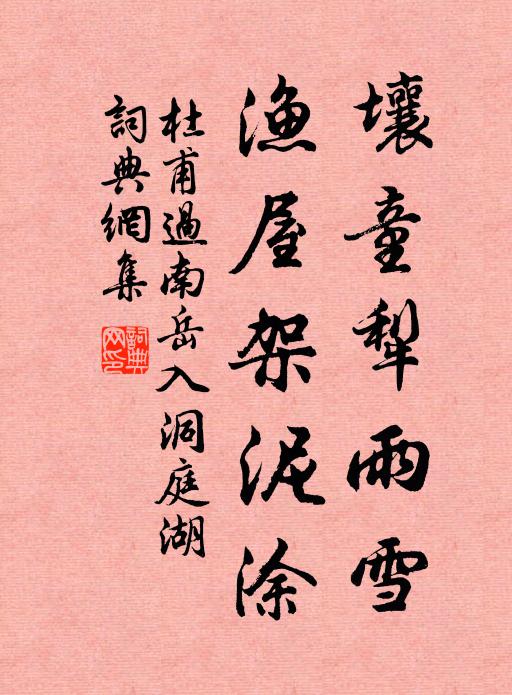 壤童犁雨雪
渔屋架泥涂
杜甫過南岳入洞庭湖
詞典網集
詞典网印